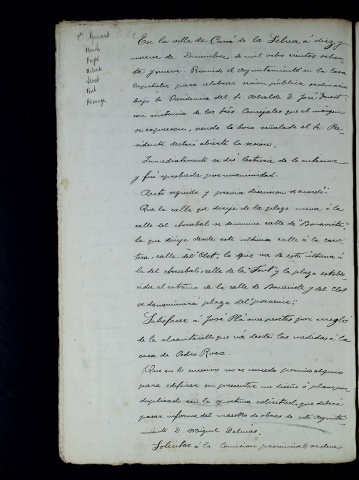 En la villa de Cassá de la Selva á diez y
nueve de Diciembre de mil ochocientos ochen-
ta y nueve. Reunido el Ayuntamiento en la Casa
Capitular para celebrar sesion pública ordinaria
bajo la Presidencia del Sr. Alcalde D. José
con asistencia de los Sres. Concejales que al márgen
se expresan, siendo la hora señalada el Sr. Pre-
sidente declaró abierta la sesion.
Inmediatamente se dió lectura de la anterior
y fué aprobada por unanimidad.
Acto seguido y previa discusion se acordó:
Que la calle que dirije de la plaza nueva á la
calle del Arrabal se denomine calle de "Buenavista",
la que dirije desde esta última calle á la carre-
tera calle "del Clot", la que va de esta última á
la del Arrabal, calle de la "Font" y la plaza estable-
cida al extremo de la calle de Buenavista y del Clot
se denominará plaza del "porvenir".
Satisfacer á José Plá pesetas por arreglo
de la alcantarilla que vá desde las medidas á la
casa de Pedro Roca.
Que en lo sucesivo no se conceda permiso alguno
para edificar sin presentar un diseño ó plano por
duplicado con la oportuna solicitud, que deberá
pasar á informe del maestro de obras de este Ayunta-
miento D. Miguel Dalmau.
Solicitar á la Comision provincial